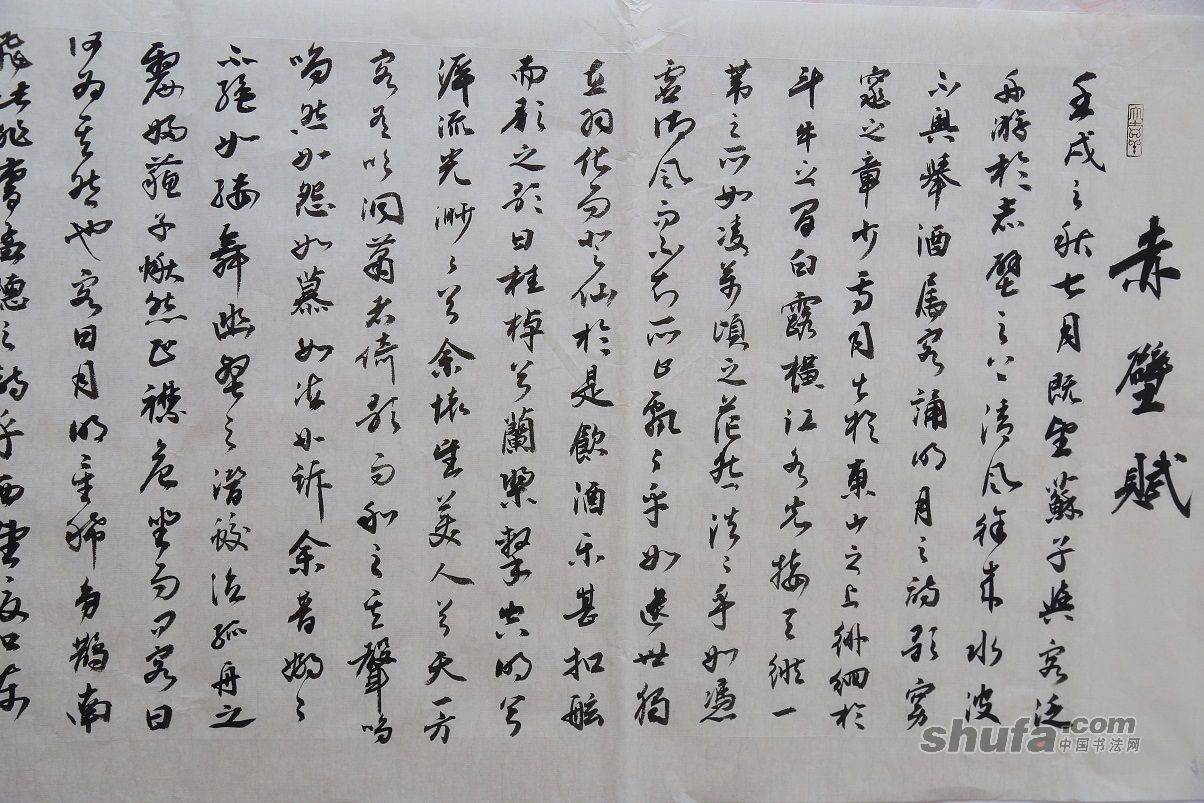 赤壁賦
壬戌之秋七月既望蘇子與客泛
舟游於赤壁之下清风徐来水波
不興舉酒属客誦明月之詩歌窈
窕之章少焉月出於東山之上徘徊於
斗牛之间白露横江水光接天縱一
苇之所如凌萬頃之茫然浩々乎如憑
虚御风而不知所止飘々乎如遗世獨
立羽化而登仙於是飲酒乐甚扣舷
而歌之歌曰桂棹兮蘭槳擊空明兮
泝流光渺々兮余懷望美人兮天一方
客有吹洞萧者倚歌而和之其聲嗚
嗚然如怨如慕如泣如訴余音嫋々
不絕如縷舞幽壑之潛蛟泣孤舟之
嫠婦蘇子愀然正襟危坐而问客曰
何为其然也客曰月明星稀乌鵲南
飛此非曹孟德之詩乎西望夏口东
shufa.com
中国书法网